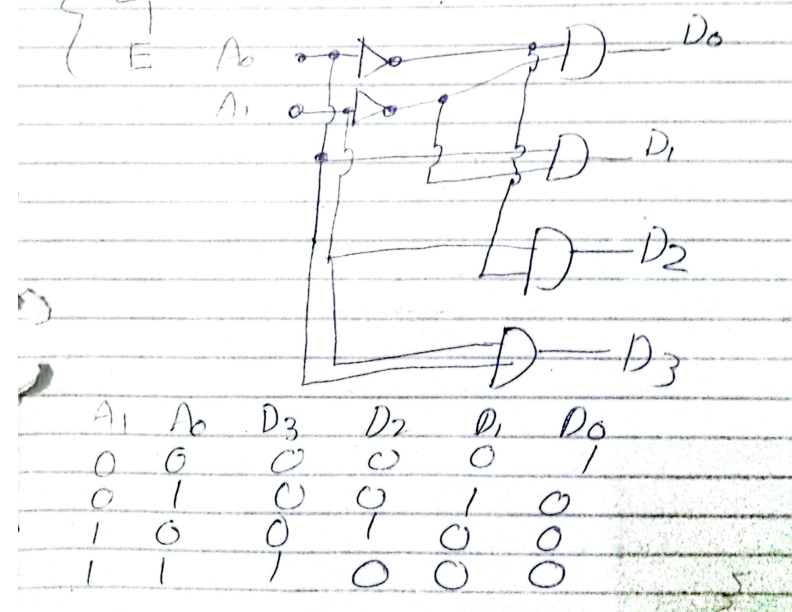 E A₀ D₀
A₁
D₁
D₂
D₃
A₁ A₀ D₃ D₂ D₁ D₀
0 0 0 0 0 1
0 1 0 0 1 0
1 0 0 1 0 0
1 1 1 0 0 0